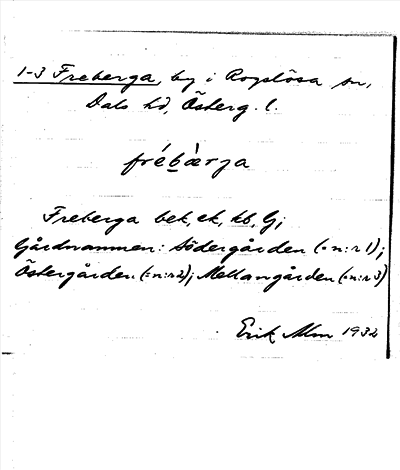 1-3 Freberga, by i Rogslösa sn,
Dals hd, Österg. l.
fré́bæ̀rga
Freberga bek, ek, kb, G;
Gårdnamnen: Södergården (=n:r 1);
Östergården (=n:r 2); Mellangården (=n:r 3)
Erik Alm 1932